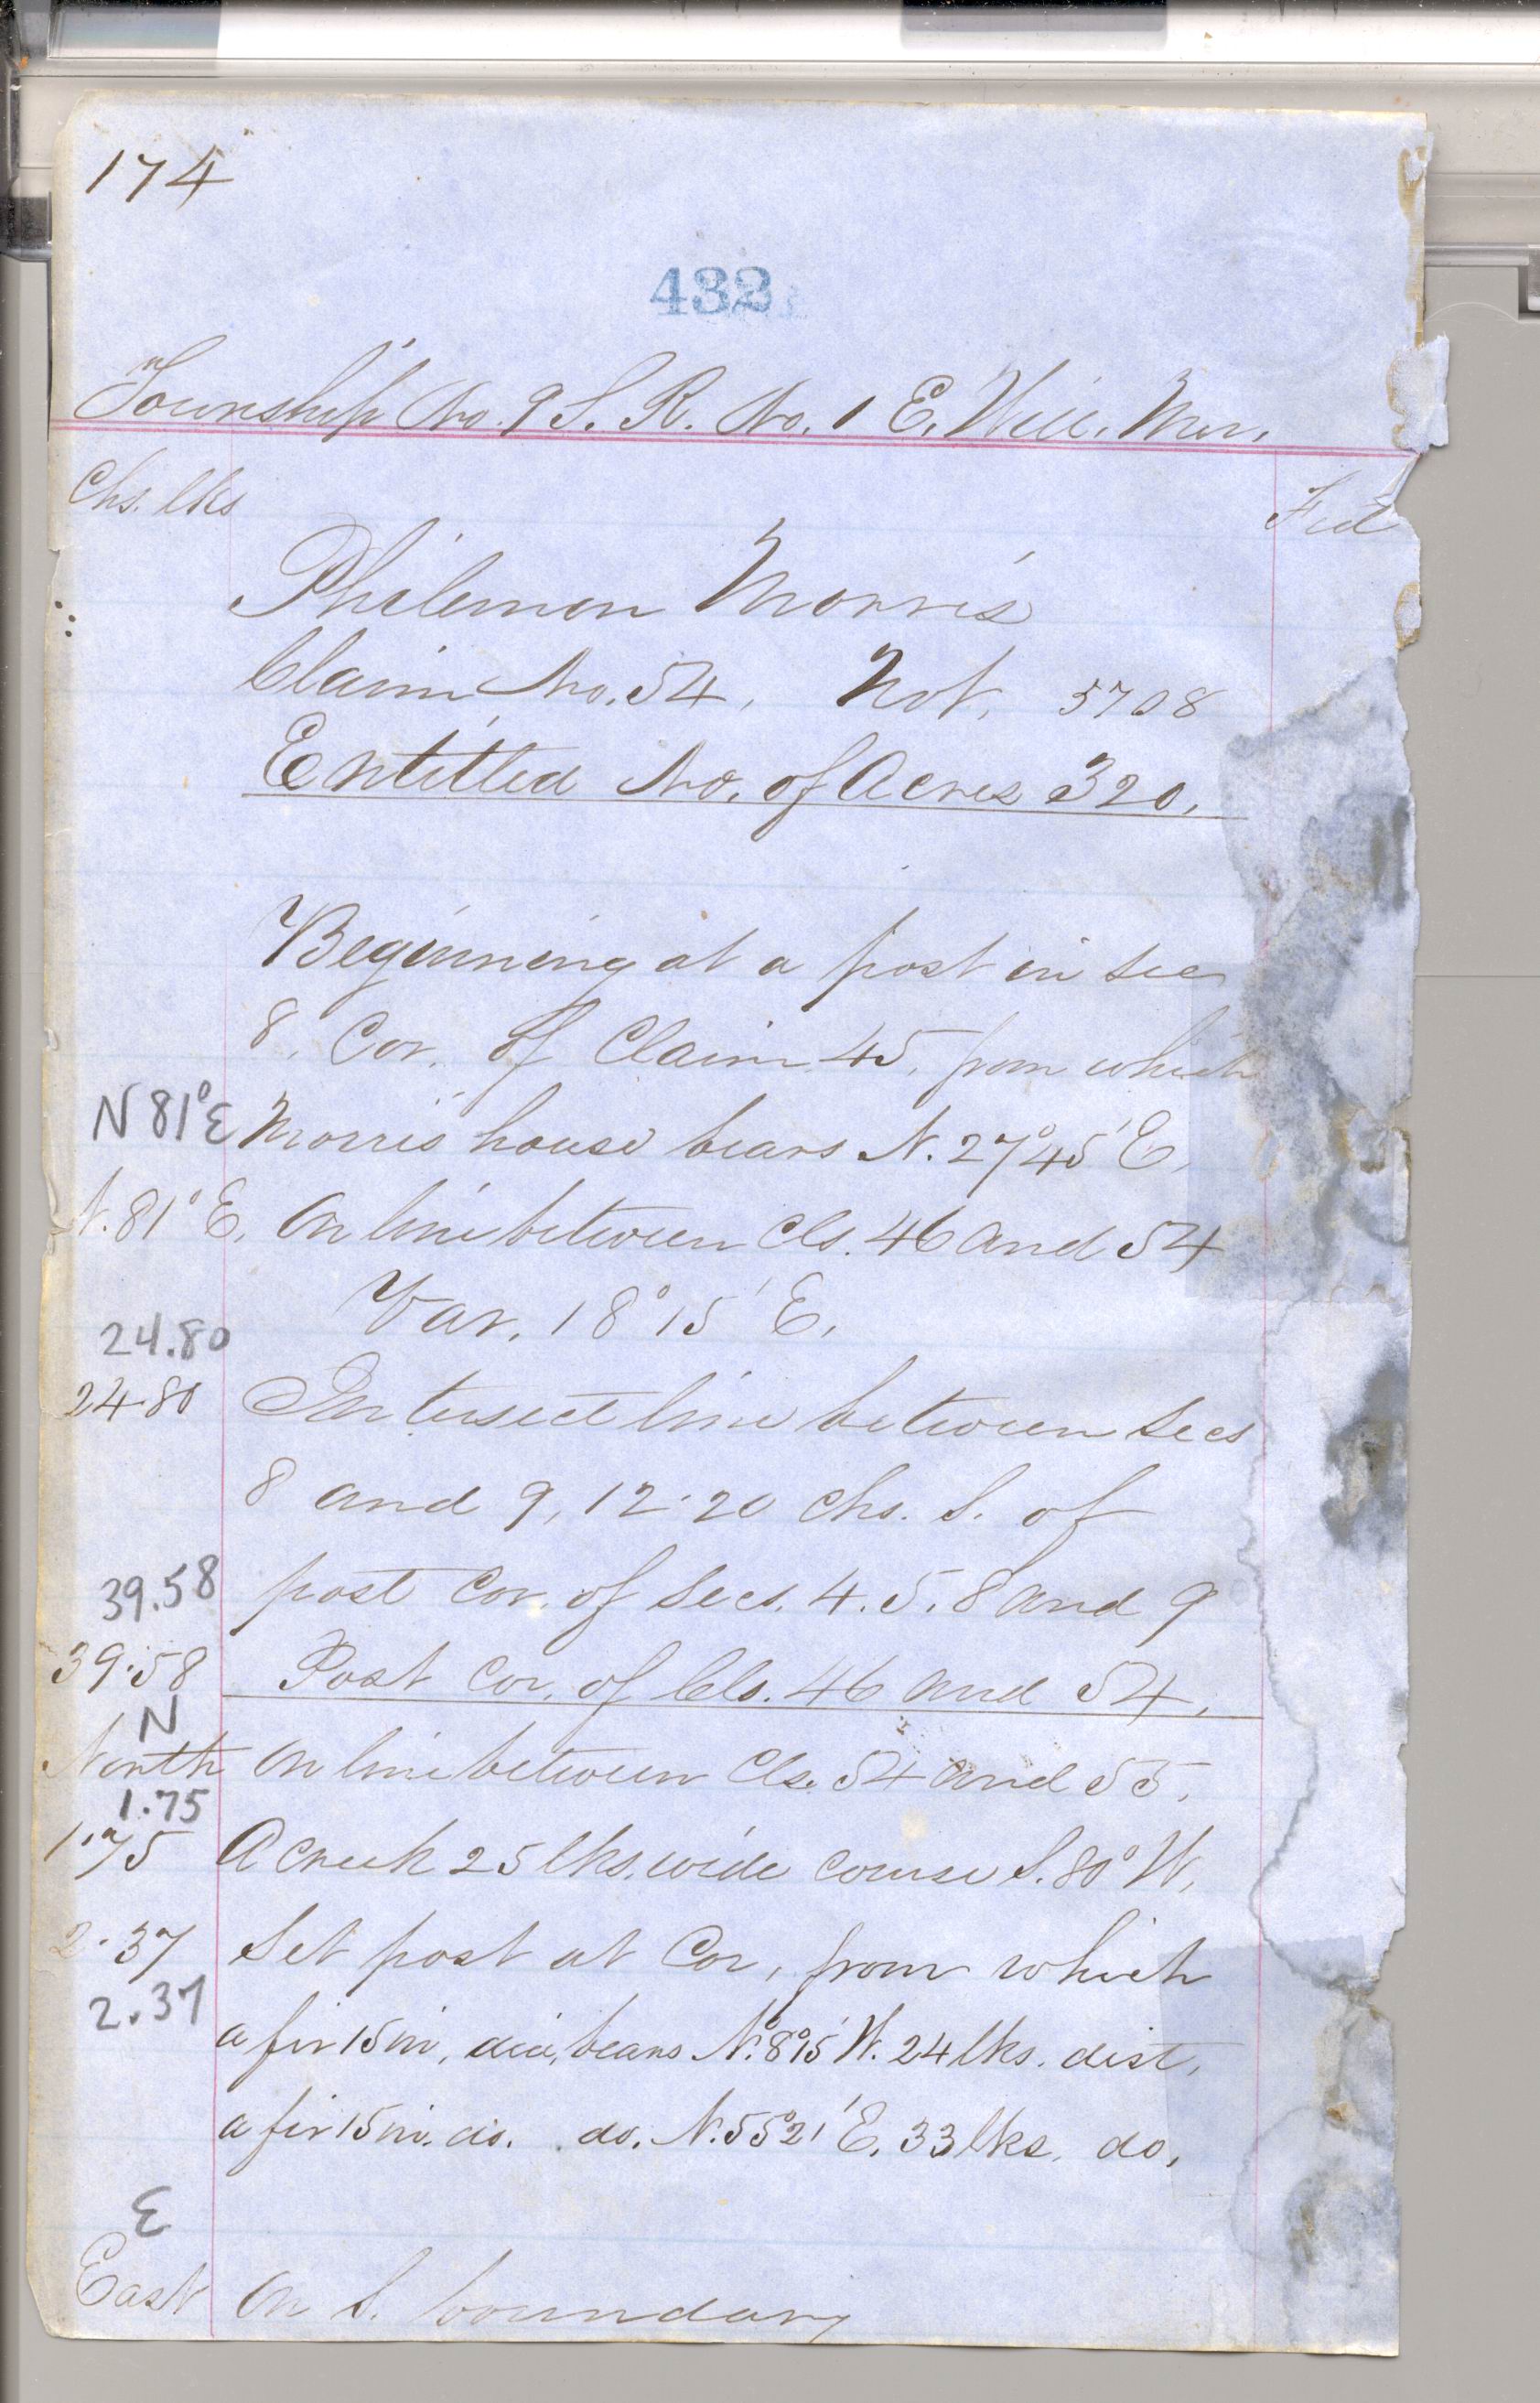 174
432
Township No. 9 S. R. No. 1 E. Will. Mer.
Chs. lks
Philemon Morris
Claim No. 54, Not. 5708
Entitled No. of Acres 320.
Beginning at a post in Sec
8. Cor. of Claim 45, from which
N 81° E Morris house bears N. 27° 45' E.
N. 81° E. On line between Cls. 46 and 54
Var. 18° 15' E.
24.80
24.80 Intersect line between Secs
8 and 9, 12.20 Chs. S. of
39.58 post Cor. of Secs. 4. 5. 8 and 9
39.58 Post Cor. of Cls. 46 and 54.
N
North On line between Cls. 54 and 55.
1.75
1.75 A creek 25 lks. wide course S. 80° W.
2.37 Set post at Cor, from which
2.37
a fir 15 in. dia, bears N. 8° 15' W. 24 lks. dist.
a fir 15 in. do. do. N. 55° 21' E. 33 lks. do.
E
East On S. boundary